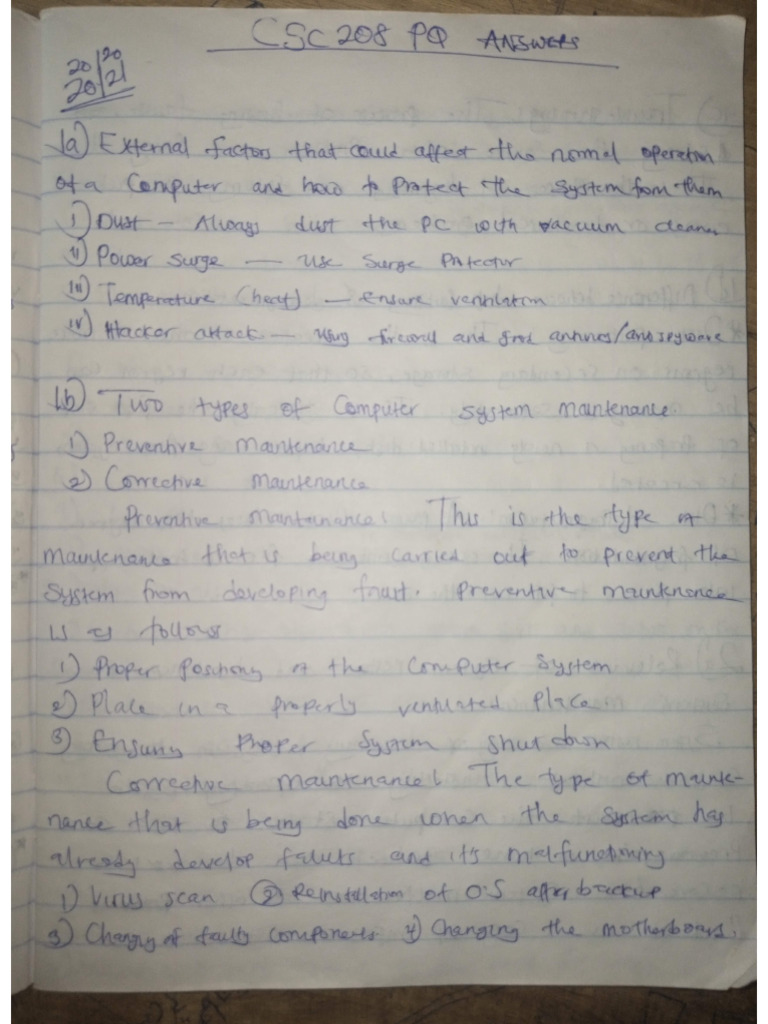 CSC 208 PQ ANSWERS
20/20
20/21
1a) External factors that could affect the normal operation
of a Computer and how to Protect the System from them
i) Dust - Always dust the PC with vacuum cleaner
ii) Power Surge - use Surge Protector
iii) Temperature (heat) - ensure ventilation
iv) Hacker attack - using firewall and good antivirus/antispyware
1b) Two types of Computer system maintenance
1) Preventive maintenance
2) Corrective maintenance
Preventive maintenance: This is the type of
maintenance that is being carried out to prevent the
System from developing fault. Preventive maintenance
is as follows
1) Proper Positioning of the Computer System
2) Place in a properly ventilated Place
3) Ensuring Proper System Shut down
Corrective maintenance: The type of mainte-
nance that is being done when the System has
already develop faluts and it's malfunctioning
1) Virus scan 2) Reinstallation of O.S after backup
3) Changing of faulty components 4) Changing the motherboard.